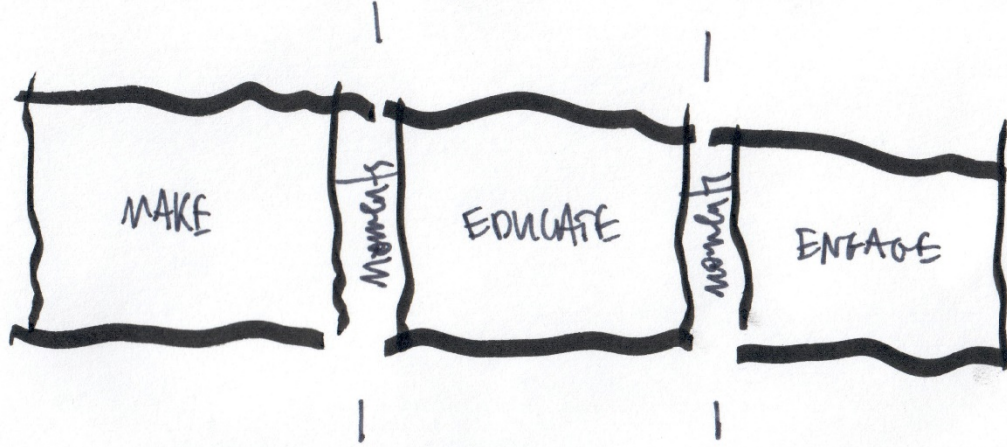 MAKE
Moments
EDUCATE
moments
ENGAGE